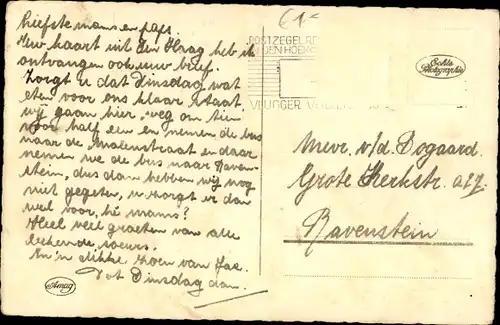 Liefste mams en paps.
Uw kaart uit den Haag heb ik
ontvangen ook uw brief.
Zorgt u dat Dinsdag wat
eten voor ons klaar staat,
wij gaan hier, weg om tien
voor half een en nemen de bus
naar de Molenstraat en daar
nemen we de bus naar Raven-
stein, dus dan hebben wij nog
niet gegeten, u zorgt er dan
wel voor, hè mams?
Heel veel groeten van alle
bekende soeurs.
En 'n dikke zoen van
Tot Dinsdag dan.
Amag
POSTZEGEL RE
IN DEN HOEK
VLUGGER
Echte
Photographie
Mevr. v/d. Bogaard.
Grote Kerkstr. a17
Ravenstein